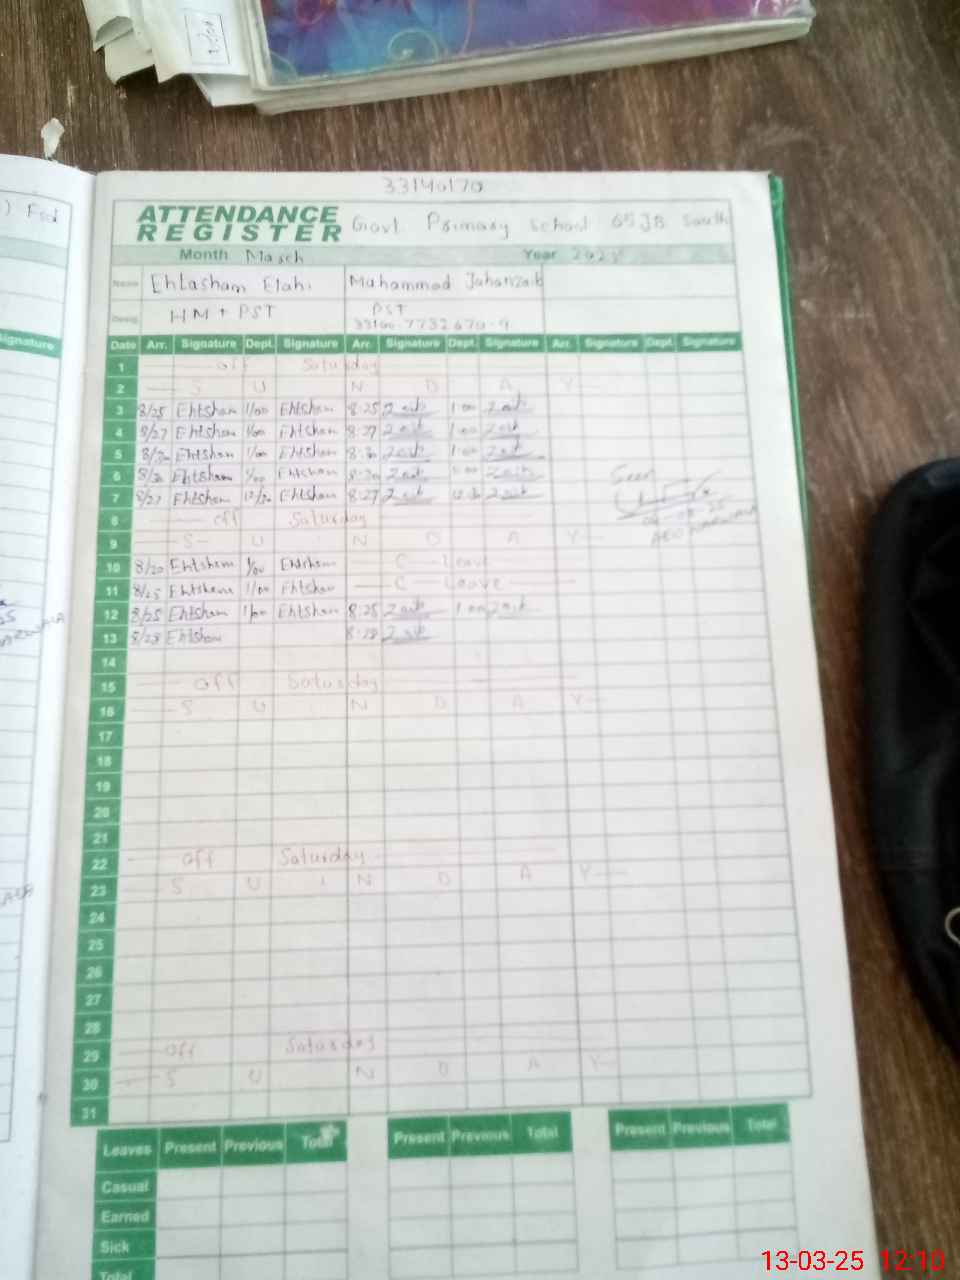 33140170
ATTENDANCE REGISTER Govt. Primary School 65 JB South
Month March Year
Name Ehtasham Elahi Muhammad Jahanzaib
Desig. HM + PST PST
Date Arr. Signature Dept. Signature Arr. Signature Dept. Signature Arr. Signature Dept. Signature
1 off Saturday
2 S U N D A Y
3 8/25 Ehtsham 1/00 Ehtsham 8:25 1:00
4 8/27 Ehtsham 1/00 Ehtsham 8:27 1:00
5 8/30 Ehtsham 1/00 Ehtsham 8:30 1:00
6 8/30 Ehtsham 1/00 Ehtsham 8:30 1:00
Seen
7 8/27 Ehtsham 12/30 Ehtsham 8:27 12:30
8 off Saturday
9 S U N D A Y
10 8/20 Ehtsham 1/00 Ehtsham C Leave
11 8/25 Ehtsham 1/00 Ehtsham C Leave
12 8/25 Ehtsham 1/00 Ehtsham 8:25 1:00
13 8/28 Ehtsham 8:28
14
15 off Saturday
16 S U N D A Y
17
18
19
20
21
22 off Saturday
23 S U N D A Y
24
25
26
27
28
29 off Saturday
30 S U N D A Y
31
Leaves Present Previous Total Present Previous Total Present Previous Total
Casual
Earned
Sick
Total
13-03-25 12:10